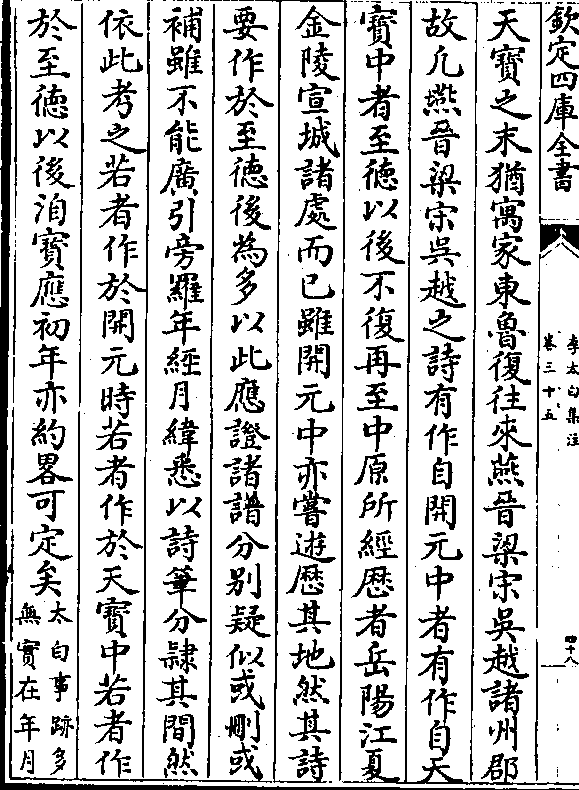 欽定四庫全書
李太白集注
卷三十五
四十八
天寶之末猶寓家東魯復往來燕晉梁宋吳越諸州郡
故凡燕晉梁宋吳越之詩有作自開元中者有作自天
寶中者至德以後不復再至中原所經歴者岳陽江夏
金陵宣城諸處而已雖開元中亦嘗遊歴其地然其詩
要作於至德後為多以此應證諸譜分别疑似或刪或
補雖不能廣引旁羅年經月緯悉以詩筆分隸其間然
依此考之若者作於開元時若者作於天寶中若者作
於至德以後洎寶應初年亦約畧可定矣
太白事跡多
無實在年月